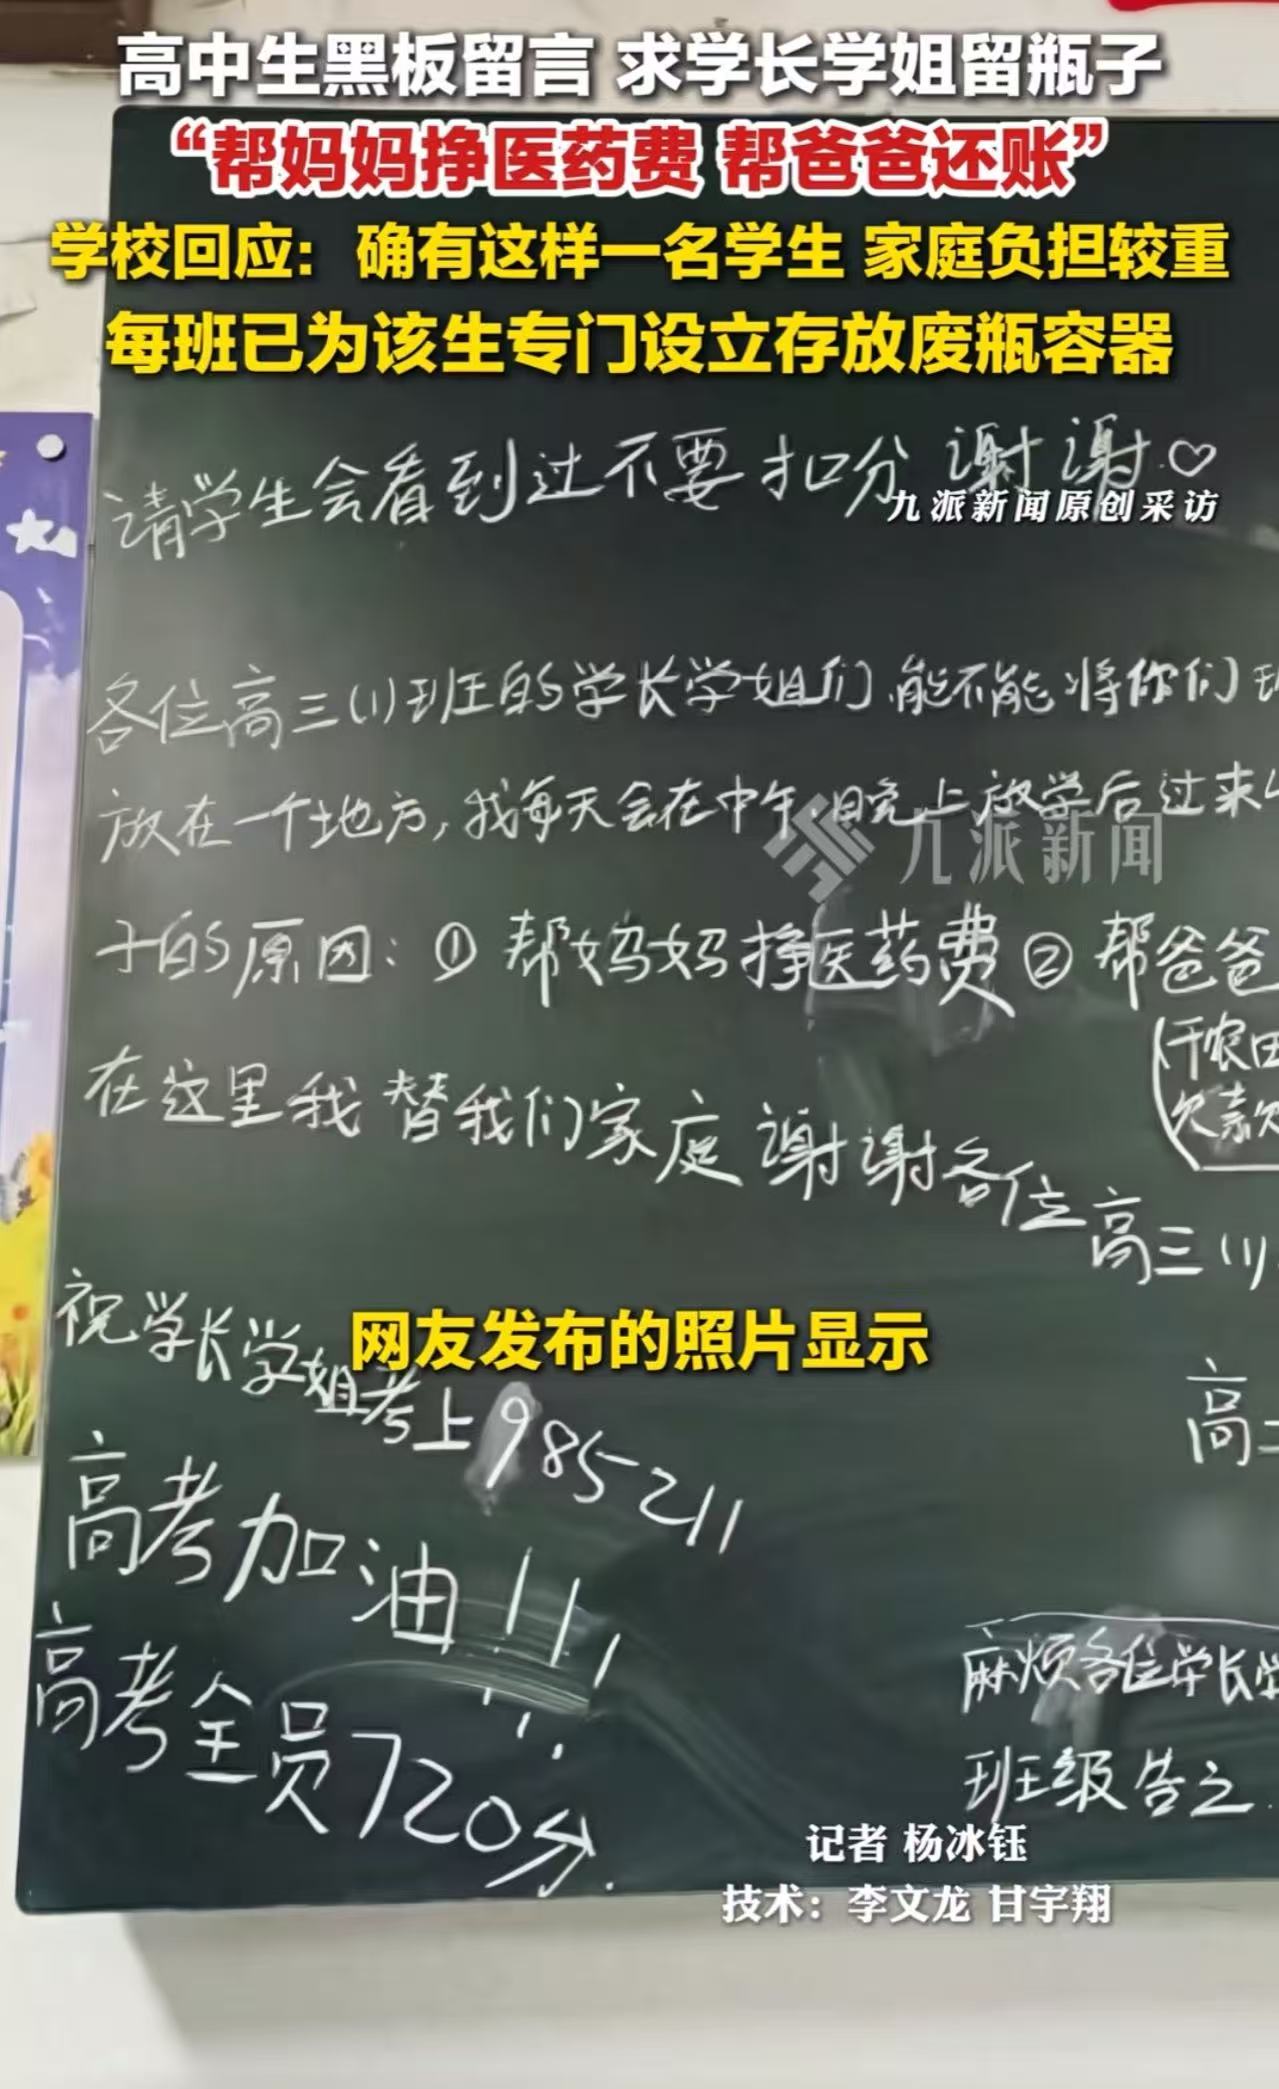 高中生黑板留言 求学长学姐留瓶子
“帮妈妈挣医药费 帮爸爸还账”
学校回应：确有这样一名学生 家庭负担较重
每班已为该生专门设立存放废瓶容器
请学生会看到过不要扣分 谢谢♡
九派新闻原创采访
各位高三(1)班的学长学姐们，能不能将你们
放在一个地方，我每天会在中午、晚上放学后过来
九派新闻
子的原因：① 帮妈妈挣医药费 ② 帮爸爸
(干农田
欠款
在这里我替我们家庭谢谢各位高三(1)
祝学长学姐考上985 211
网友发布的照片显示
高考加油!!!
高考全员720分.
高二
麻烦各位学长
班级告之.
记者 杨冰钰
技术：李文龙 甘宇翔